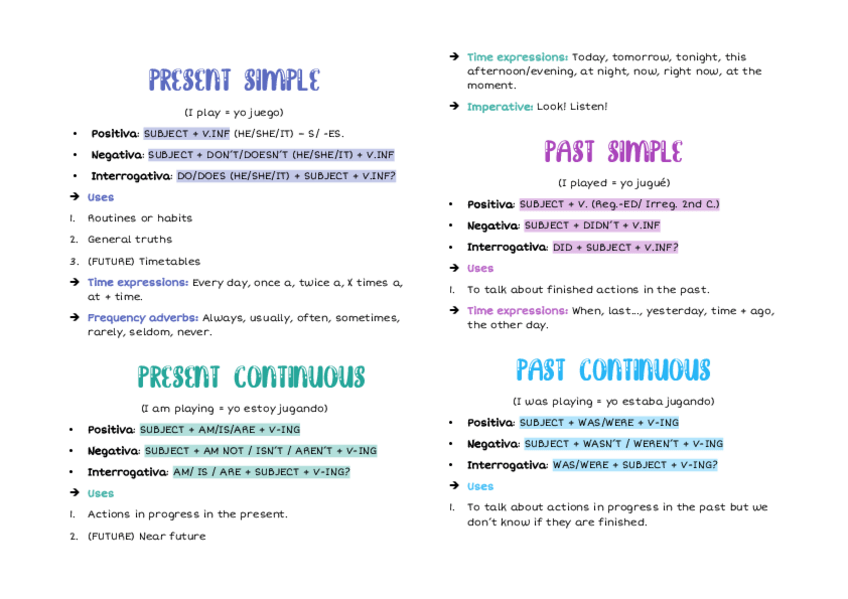 PRESENT SIMPLE
(I play = yo juego)
• Positiva: SUBJECT + V.INF (HE/SHE/IT) – S/ -ES.
• Negativa: SUBJECT + DON'T/DOESN'T (HE/SHE/IT) + V.INF
• Interrogativa: DO/DOES (HE/SHE/IT) + SUBJECT + V.INF?
➔ Uses
1. Routines or habits
2. General truths
3. (FUTURE) Timetables
➔ Time expressions: Every day, once a, twice a, X times a,
at + time.
➔ Frequency adverbs: Always, usually, often, sometimes,
rarely, seldom, never.
PRESENT CONTINUOUS
(I am playing = yo estoy jugando)
• Positiva: SUBJECT + AM/IS/ARE + V-ING
• Negativa: SUBJECT + AM NOT / ISN'T / AREN'T + V-ING
• Interrogativa: AM/ IS / ARE + SUBJECT + V-ING?
➔ Uses
1. Actions in progress in the present.
2. (FUTURE) Near future
➔ Time expressions: Today, tomorrow, tonight, this
afternoon/evening, at night, now, right now, at the
moment.
➔ Imperative: Look! Listen!
PAST SIMPLE
(I played = yo jugué)
• Positiva: SUBJECT + V. (Reg.-ED/ Irreg. 2nd C.)
• Negativa: SUBJECT + DIDN'T + V.INF
• Interrogativa: DID + SUBJECT + V.INF?
➔ Uses
1. To talk about finished actions in the past.
➔ Time expressions: When, last..., yesterday, time + ago,
the other day.
PAST CONTINUOUS
(I was playing = yo estaba jugando)
• Positiva: SUBJECT + WAS/WERE + V-ING
• Negativa: SUBJECT + WASN'T / WEREN'T + V-ING
• Interrogativa: WAS/WERE + SUBJECT + V-ING?
➔ Uses
1. To talk about actions in progress in the past but we
don't know if they are finished.